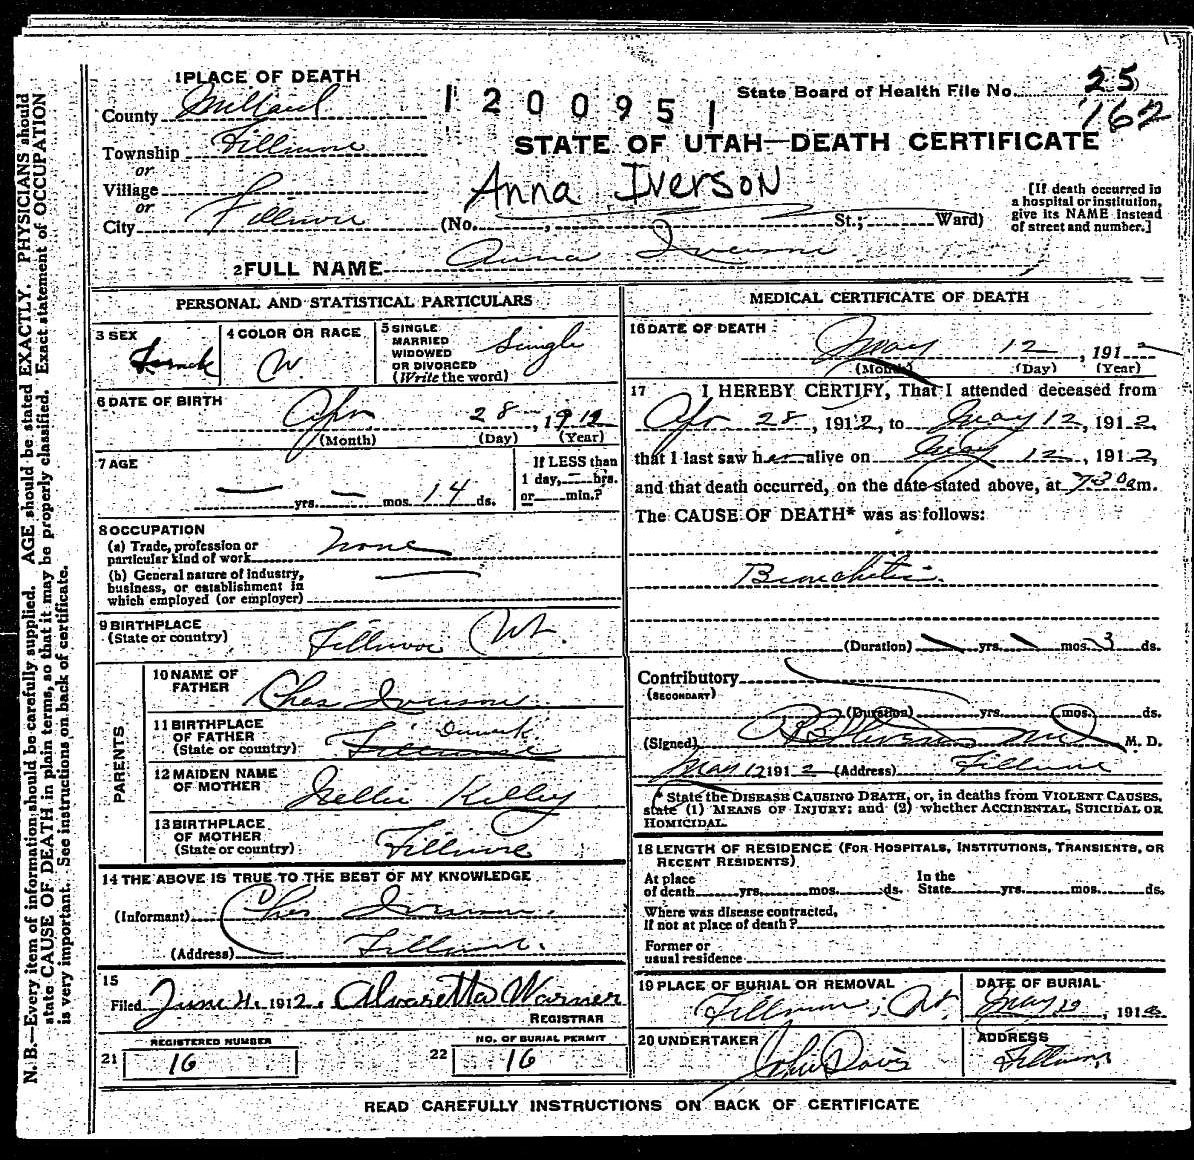 N. B.—Every item of information should be carefully supplied. AGE should be stated EXACTLY. PHYSICIANS should
state CAUSE OF DEATH in plain terms, so that it may be properly classified. Exact statement of OCCUPATION
is very important. See instructions on back of certificate.
1 PLACE OF DEATH
County Millard
Township Fillmore
or
Village
or
City Fillmore
1200951
State Board of Health File No. 25
162
STATE OF UTAH—DEATH CERTIFICATE
Anna Iverson
(No. , St.; Ward)
[If death occurred in
a hospital or institution,
give its NAME instead
of street and number.]
2 FULL NAME Anna Iverson
PERSONAL AND STATISTICAL PARTICULARS
3 SEX Female
4 COLOR OR RACE W
5 SINGLE
MARRIED
WIDOWED
OR DIVORCED
(Write the word)
Single
6 DATE OF BIRTH
Apr 28, 1912
(Month) (Day) (Year)
7 AGE
— yrs. — mos. 14 ds.
If LESS than
1 day, hrs.
or min.?
8 OCCUPATION
(a) Trade, profession or
particular kind of work none
(b) General nature of industry,
business, or establishment in
which employed (or employer)
9 BIRTHPLACE
(State or country) Fillmore Ut.
PARENTS
10 NAME OF
FATHER Chas Iverson
11 BIRTHPLACE
OF FATHER
(State or country) Fillmore
12 MAIDEN NAME
OF MOTHER Nellie Kelley
13 BIRTHPLACE
OF MOTHER
(State or country) Fillmore
14 THE ABOVE IS TRUE TO THE BEST OF MY KNOWLEDGE
(Informant) Chas Iverson
(Address) Fillmore.
15
Filed June 4, 1912, Alvaretta Warner
REGISTRAR
21 REGISTERED NUMBER
16
22 NO. OF BURIAL PERMIT
16
MEDICAL CERTIFICATE OF DEATH
16 DATE OF DEATH
May 12, 1912
(Month) (Day) (Year)
17 I HEREBY CERTIFY, That I attended deceased from
Apr 28, 1912, to May 12, 1912,
that I last saw her alive on May 12, 1912,
and that death occurred, on the date stated above, at 7:30 a m.
The CAUSE OF DEATH* was as follows:
Bronchitis.
(Duration) yrs. mos. 3 ds.
Contributory
(SECONDARY)
(Duration) yrs. mos. ds.
(Signed) Stevens M. D.
May 12 1912 (Address) Fillmore
* State the DISEASE CAUSING DEATH, or, in deaths from VIOLENT CAUSES,
state (1) MEANS OF INJURY; and (2) whether ACCIDENTAL, SUICIDAL OR
HOMICIDAL.
18 LENGTH OF RESIDENCE (FOR HOSPITALS, INSTITUTIONS, TRANSIENTS, OR
RECENT RESIDENTS)
At place
of death yrs. mos. ds.
In the
State yrs. mos. ds.
Where was disease contracted,
If not at place of death?
Former or
usual residence
19 PLACE OF BURIAL OR REMOVAL
Fillmore, Ut.
DATE OF BURIAL
May , 191
20 UNDERTAKER
John Davis
ADDRESS
Fillmore
READ CAREFULLY INSTRUCTIONS ON BACK OF CERTIFICATE